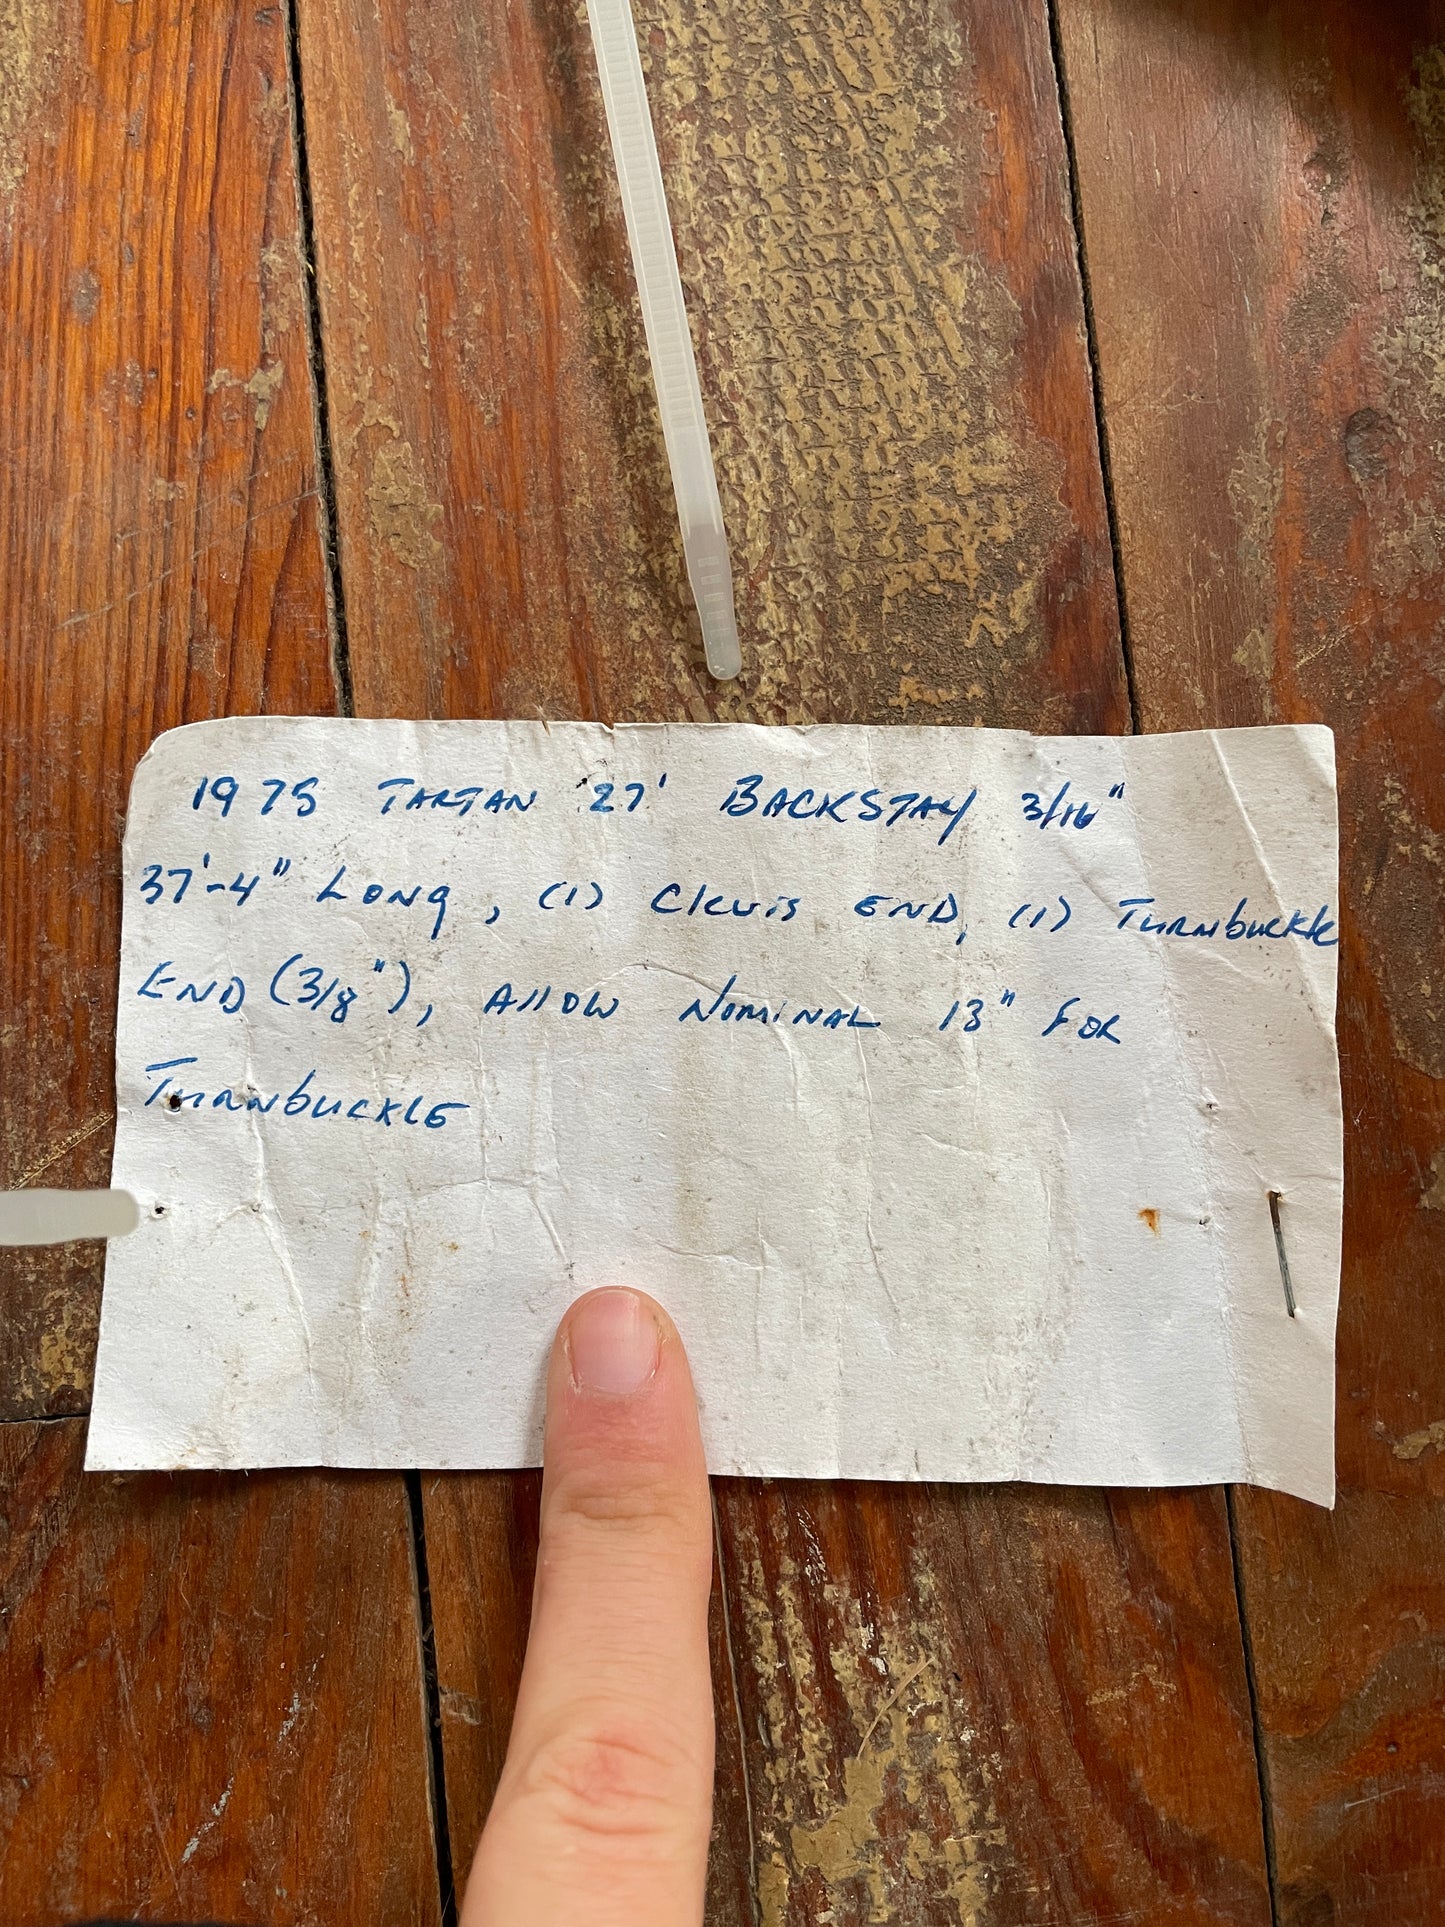 1975 TARTAN 27' BACKSTAY 3/16"
37'-4" LONG, (1) Clevis END, (1) Turnbuckle
END (3/8"), Allow NOMINAL 13" FOR
TurnbucklE